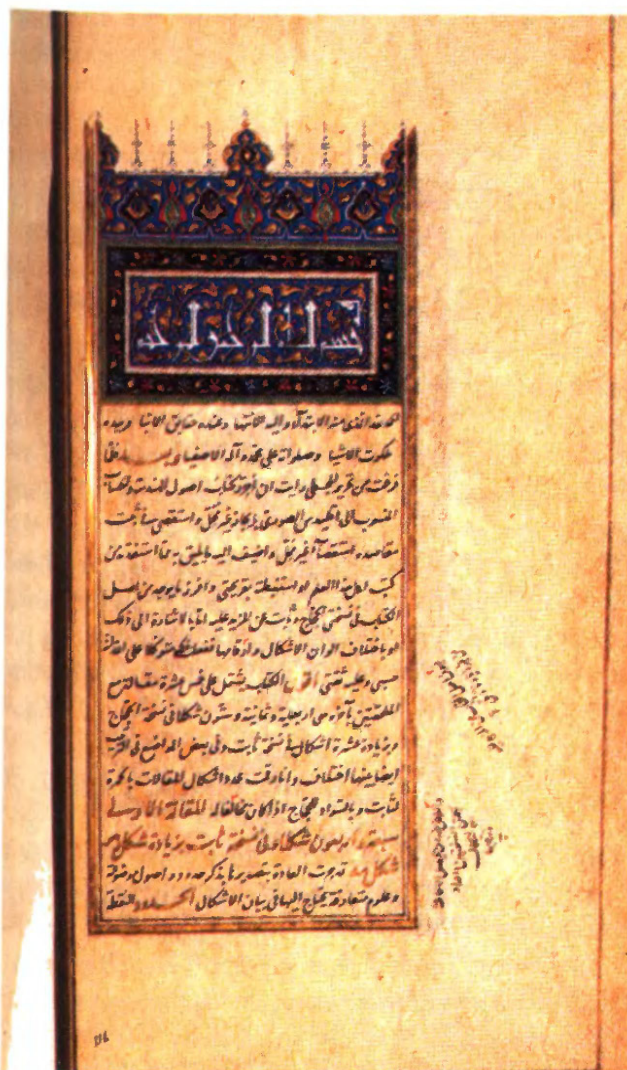 بسم الله الرحمن الرحيم
الحمد لله الذي منه الابتداء واليه الانتها وعنده حقايق الانبا وبيده
ملكوت الاشيا وصلواته على محمد وآله الاصفيا وبعد فلما
فرغت من تحرير المجسطي رايت ان احرر كتاب اصول الهندسة والحساب
المنسوب الى اقليدس الصوري بايجاز غير مخل واستقصي في تثبت
مقاصده استقصآ غير ممل واضيف اليه ما يليق به مما استفدته من
كتب اهل هذا العلم او استنبطته بقريحتي وافرز ما يوجد من اصل
الكتاب في نسختي الحجاج وثابت عن المزيد عليه اما بالاشارة الى ذلك
او باختلاف الوان الاشكال وارقامها ففعلت ذلك متوكلا على الله انه
حسبي وعليه ثقتي اقول الكتاب يشتمل على خمس عشرة مقالة مع
الملحقتين بآخره وهي اربعماية وثمانية وستون شكلا في نسخة الحجاج
وبزيادة عشرة اشكال في نسخة ثابت وفي بعض المواضع في الترتيب
ايضا بينهما اختلاف وانا رقمت عدد اشكال المقالات بالحمرة
لثابت وبالسواد للحجاج اذا كان مخالفا له المقالة الاولى
سبعة واربعون شكلا وفي نسخة ثابت بزيادة شكل
شكل مه قد جرت العادة بتصديرها بذكر حدود واصول موضوعة
وعلوم متعارفة يحتاج اليها في بيان الاشكال الحدود النقطة